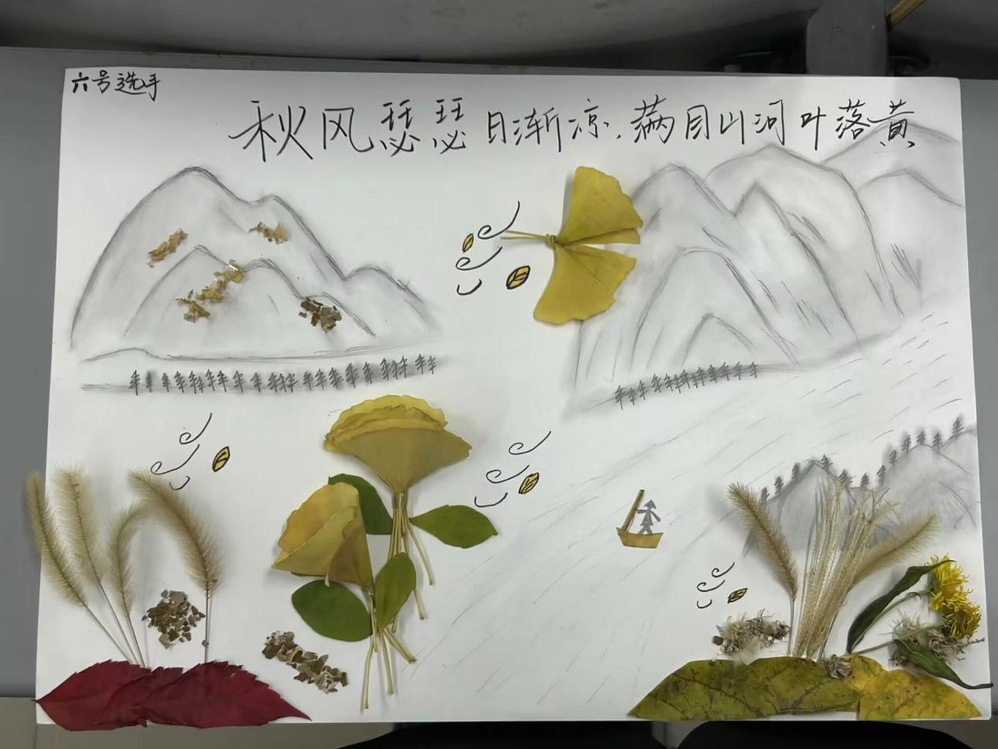 六号选手
秋风瑟瑟日渐凉，满目山河叶落黄